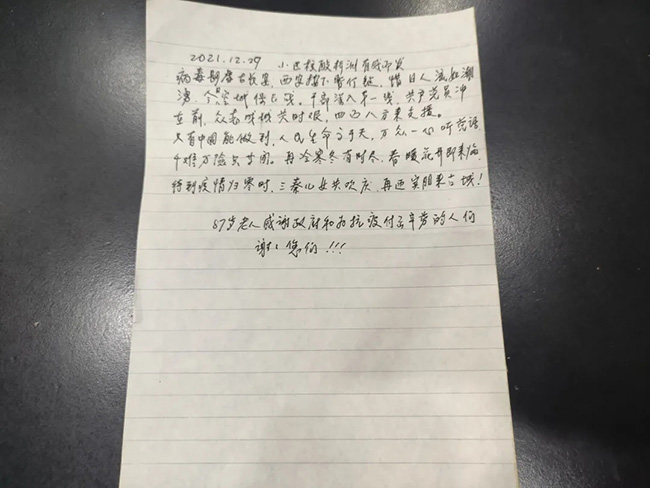 2021.12.29 小区核酸检测有感而发
病毒肆虐古长安,西安按下暂行键,惜日人流如潮
涌,个空城传。干部深入第一线,共产党员冲
在前,众志成城共时艰,四面八方来支援。
只有中国能做到,人民生命高于天,万众一心听党话
千难万险只等闲。再冷寒冬有时尽,春暖花开即来临,
待到疫情归零时,三秦儿女共欢庆,再迎宾朋来古城!
87岁老人感谢政府和为抗疫付出辛劳的人们
谢:您们!!!